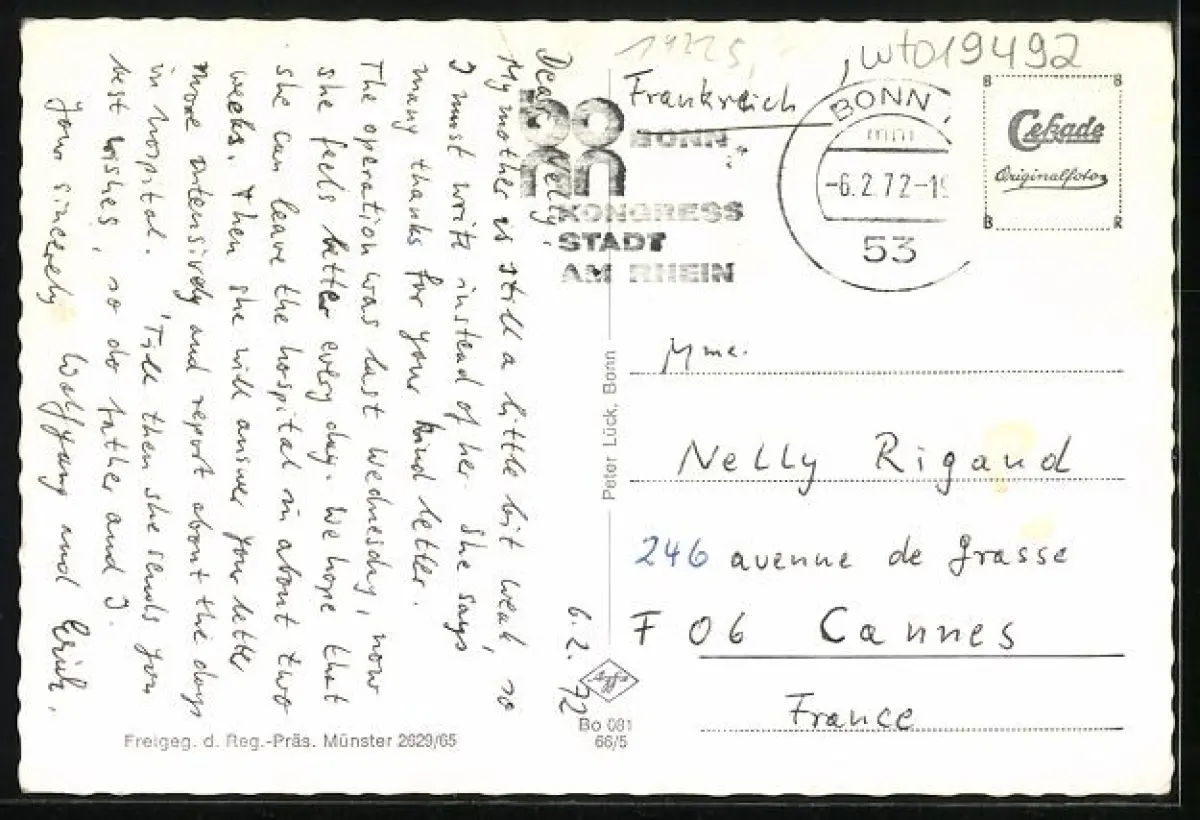 Dear Nelly,
My mother is still a little bit weak, so
I must write instead of her. She says
many thanks for your kind letter.
The operation was last Wednesday, now
she feels better every day. We hope that
she can leave the hospital in about two
weeks. Then she will answer your letter
more intensively and report about the days
in hospital. 'Till then she sends you
best wishes, so do father and I.
Your sincerely Wolfgang and Erich.
6.2.72
14225,-
wto19492
Frankreich
BONN
KONGRESS
STADT
AM RHEIN
BONN
-6.2.72-19
53
B B
Cekade
Originalfoto
B R
Mme.
Nelly Rigaud
246 avenue de Grasse
F 06 Cannes
France
Peter Lück, Bonn
Bo 081
66/5
Freigeg. d. Reg.-Präs. Münster 2629/65